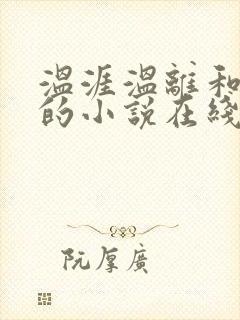 温涯温離和
的小説在綫
阮厚廣